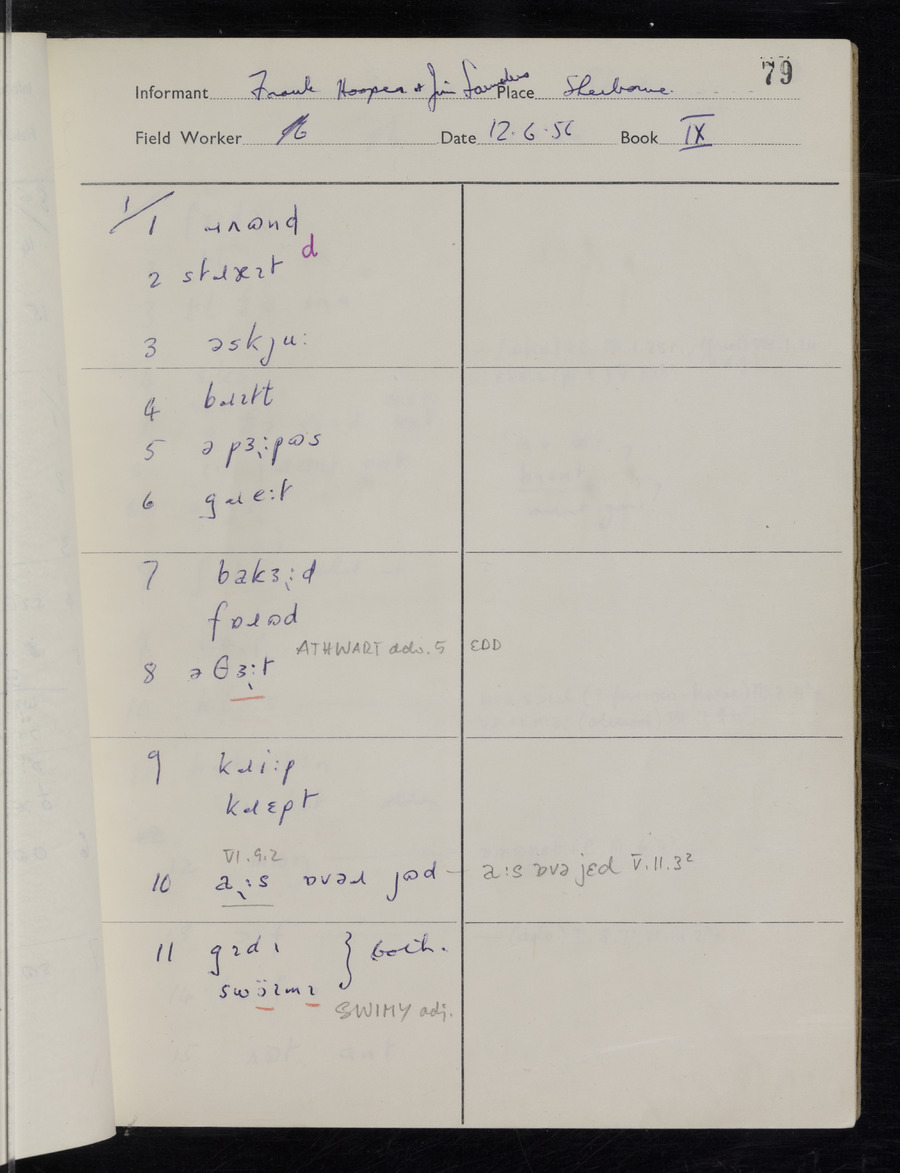 79
Informant Frank Hooper & Jim Saunders Place Sherborne.
Field Worker Date 12.6.56 Book IX
1/1 ɹʌʊnd
d
2 stɹæɪt
3 əskjuː
4 bɹɪtt
5 ə pɜ̨ːpəs
6 gɹeːt
7 bakɜ̨ːd
fɒɹəd
ATHWART adv. 5 EDD
8 əθɜ̨ːt
9 kɹiːp
kɹɛpt
VI.9.2
10 ąːs ɒvəɹ jəd — aːs ɒvə jɛd V.11.3²
11 gɪdɪ } both.
swöɪmɪ
SWIMY adj.